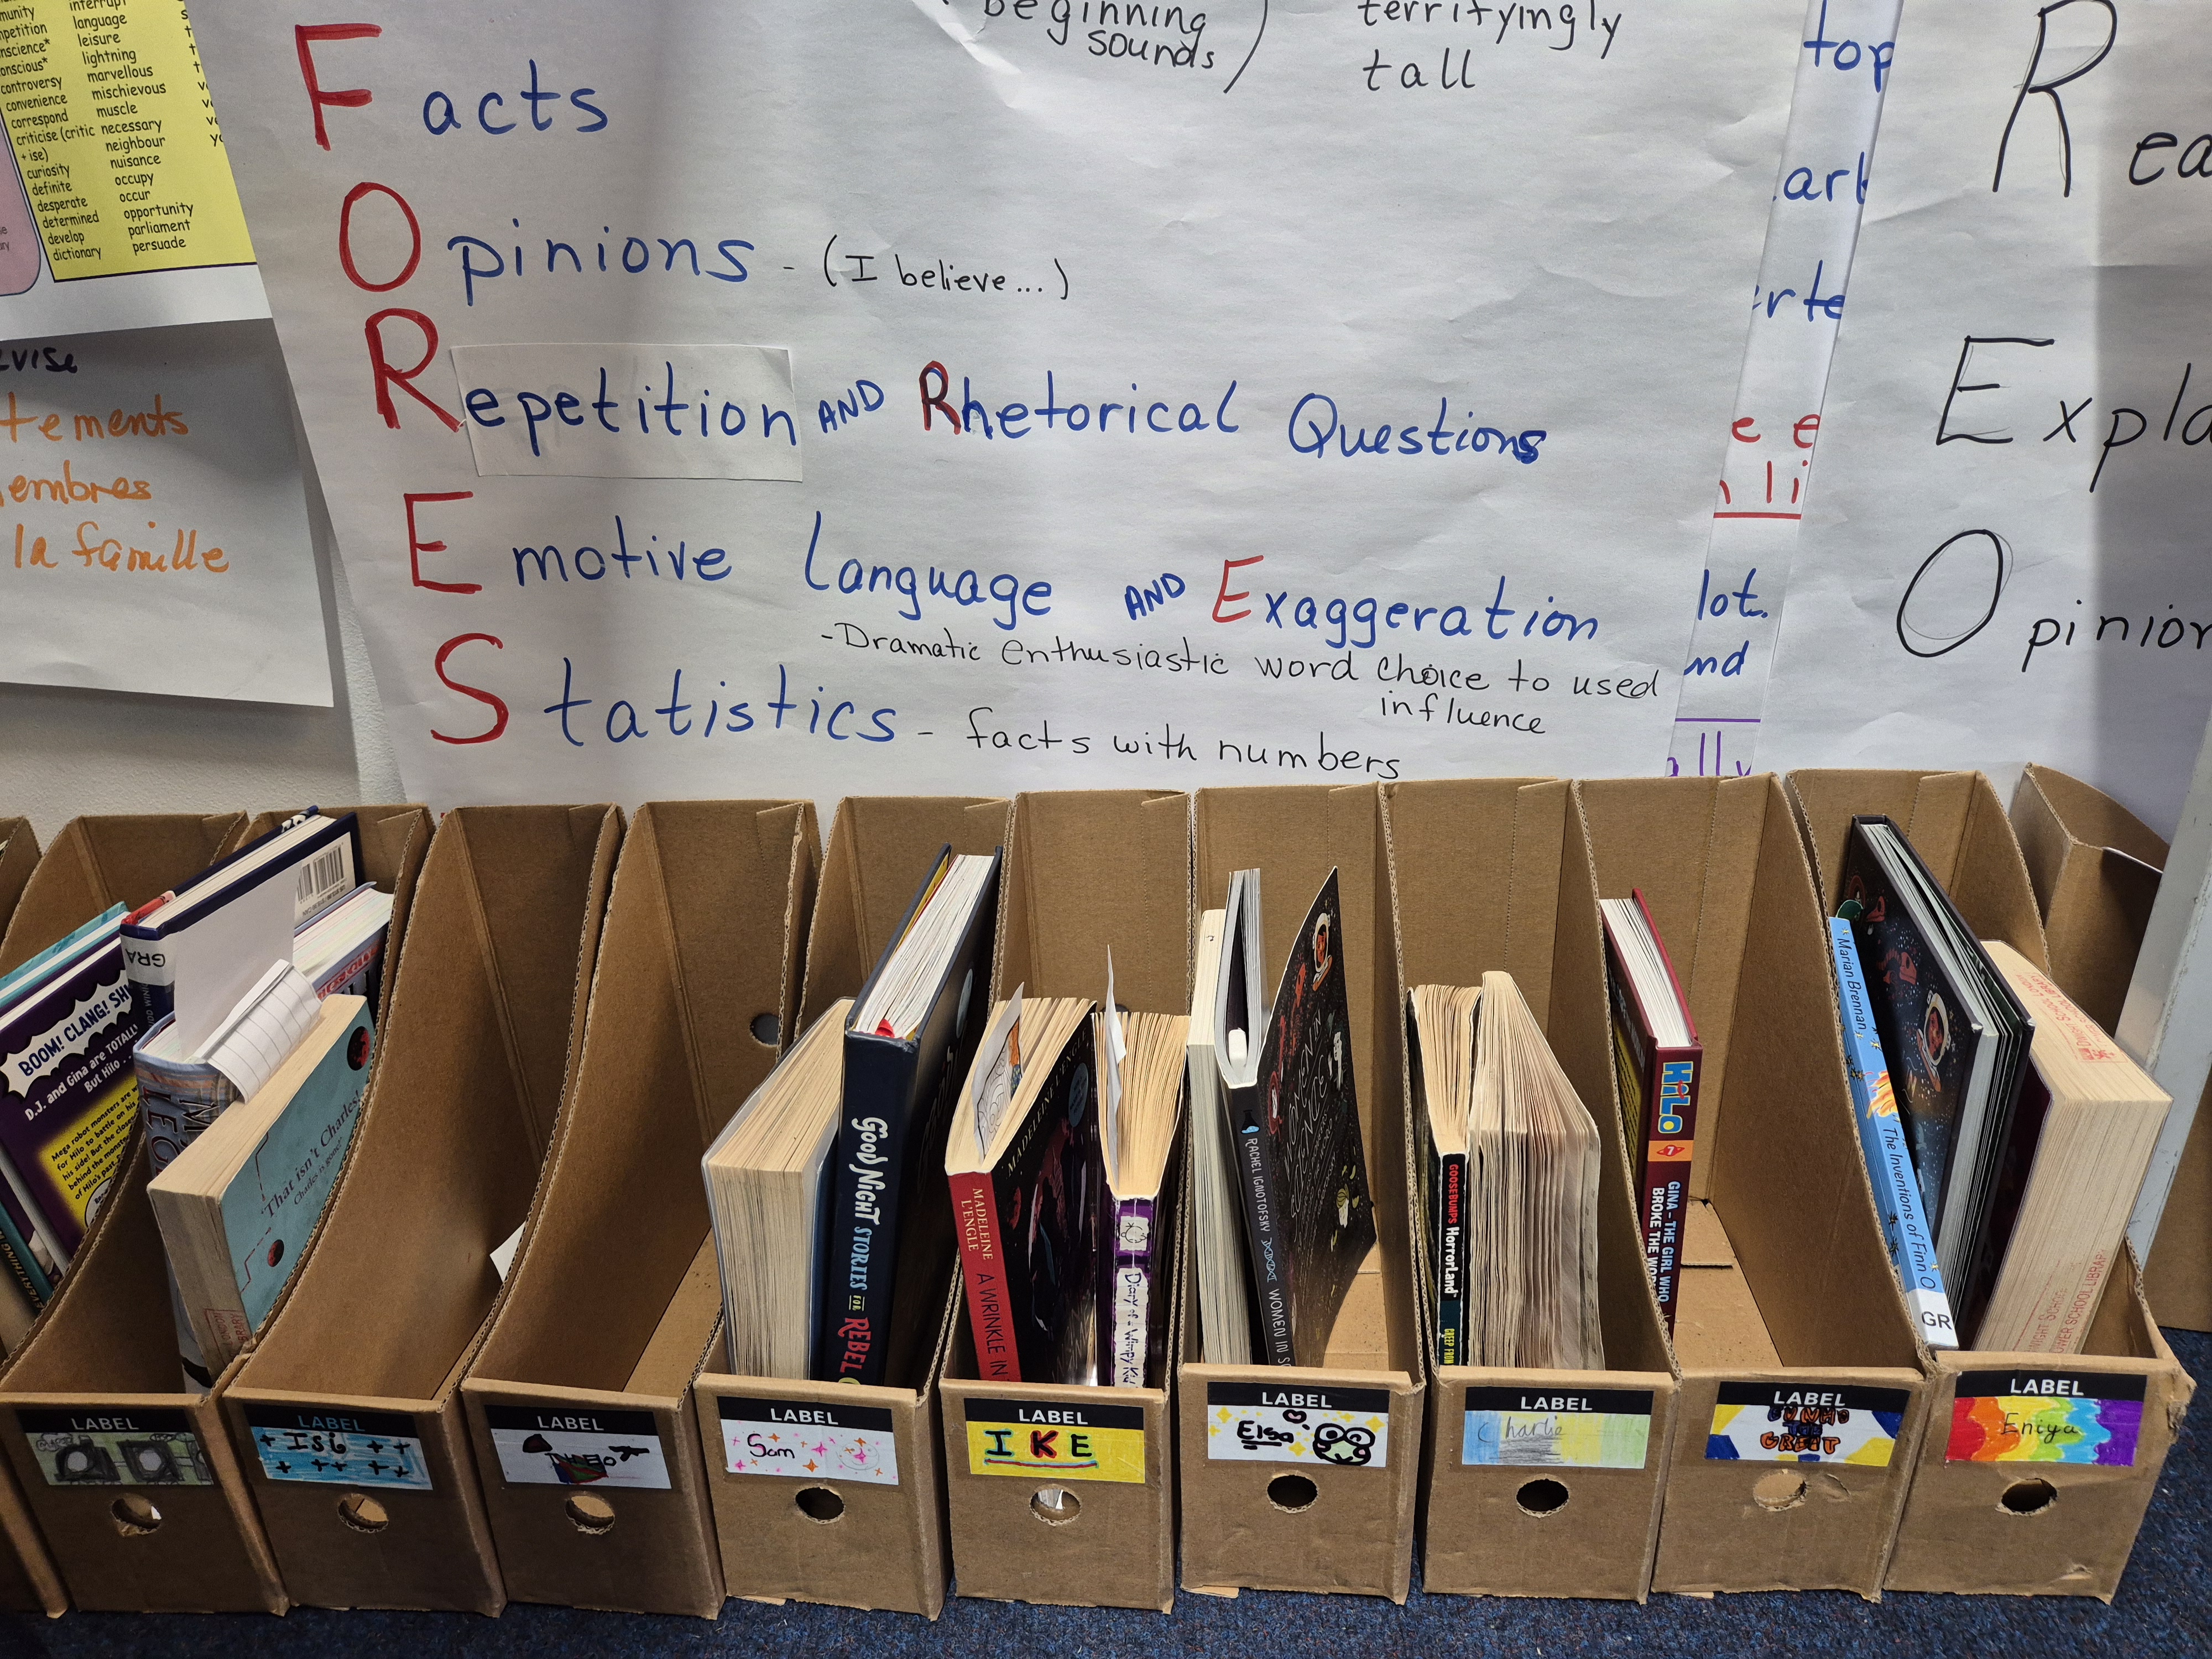 interrupt
language
leisure
lightning
controversy marvellous
convenience mischievous
correspond muscle
criticise (critic necessary
+ ise) neighbour
curiosity nuisance
definite occupy
desperate occur
determined opportunity
develop parliament
dictionary persuade
la famille
beginning
sounds)
terrifyingly
tall
Facts
Opinions - (I believe...)
Repetition AND Rhetorical Questions
Emotive Language AND Exaggeration
- Dramatic enthusiastic word choice to used
influence
Statistics - facts with numbers
top
lot.
R
Opinion
BOOM! CLANG!
D.J. and Gina are TOTALLY
But Hilo...
Mega robot monsters are
for Hilo to battle on his
his side! But the closer
behind the monsters
of Hilo's past
"That isn't Charles!
Charles is gone
GOOD NIGHT STORIES FOR REBEL
MADELEINE L'ENGLE A WRINKLE IN
Diary of a Wimpy Kid
RACHEL IGNOTOFSKY WOMEN IN
GOOSEBUMPS HorrorLand
HiLo
7
GINA - THE GIRL WHO
BROKE THE
Marian Brennan The Inventions of Finn O
GR
LABEL
LABEL
Isi
LABEL
LABEL
Sam
LABEL
IKE
LABEL
Elsa
LABEL
Charlie
LABEL
GREAT
LABEL
Eniya